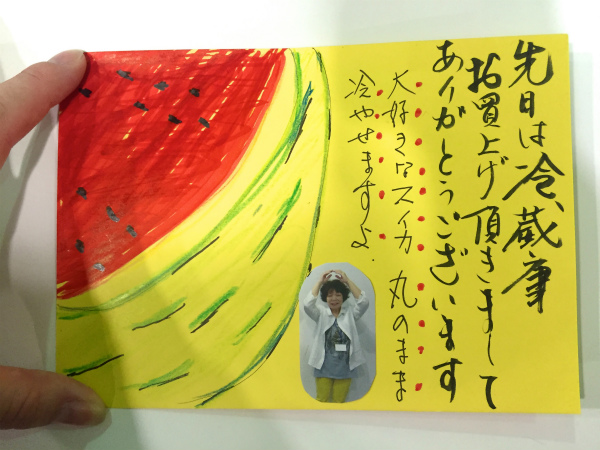 先日は冷蔵庫
お買上げ頂きまして
ありがとうございます
大好きなスイカ 丸のまま
冷やせますよ.